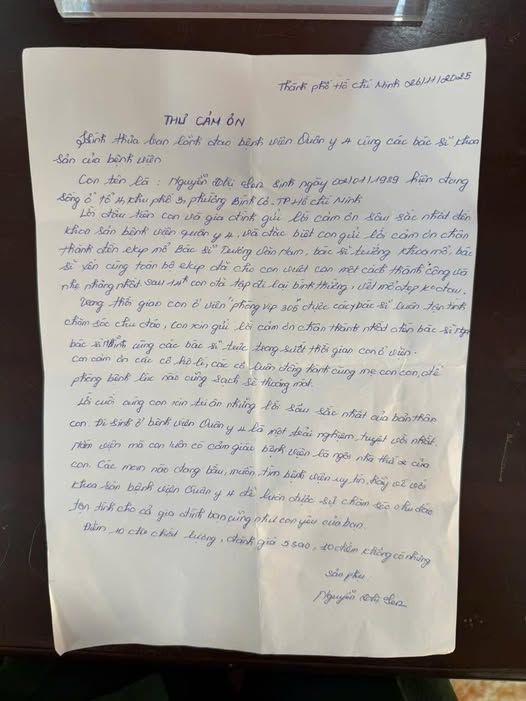 Thành phố Hồ Chí Minh 26/11/2025
THƯ CẢM ƠN
Kính thưa ban lãnh đạo bệnh viện Quân y 4 cùng các bác sĩ khoa
sản của bệnh viện
Con tên là : Nguyễn Thị Sen sinh ngày 02/01/1989 hiện đang
sống ở tổ 4, khu phố 3, phường Bình Cơ. TP Hồ Chí Minh
Lời đầu tiên con và gia đình gửi lời cảm ơn sâu sắc nhất đến
khoa sản bệnh viện quân y 4, và đặc biệt con gửi lời cảm ơn chân
thành đến ekip mổ Bác sĩ Dương Văn Nam, bác sĩ trưởng khoa mổ, bác
sĩ Yến cùng toàn bộ ekip đã cho con vượt cạn một cách thành công và
nhẹ nhàng nhất, sau con đã tập đi lại bình thường, vết mổ đẹp ko đau.
Trong thời gian con ở viện phòng vip 306 được các bác sĩ luôn tận tình
chăm sóc chu đáo, con xin gửi lời cảm ơn chân thành nhất đến bác sĩ
bác sĩ cùng các bác sĩ trực trong suốt thời gian con ở viện.
Con cảm ơn các cô hộ lí, các cô luôn đồng hành cùng mẹ con con, để
phòng bệnh lúc nào cũng sạch sẽ thoáng mát.
Lời cuối cùng con xin tri ân những lời sâu sắc nhất của bản thân
con. Đi sinh ở bệnh viện Quân y 4 là một trải nghiệm tuyệt vời nhất.
Nằm viện mà con luôn có cảm giác bệnh viện là ngôi nhà thứ 2 của
con. Các mom nào đang bầu, muốn tìm bệnh viện uy tín, hãy về với
khoa sản bệnh viện Quân y 4 để luôn được sự chăm sóc chu đáo
tận tình cho cả gia đình bạn cũng như con yêu của bạn.
Điểm 10 cho chất lượng, đánh giá 5 sao, 10 điểm không có nhưng
Sản phụ
Nguyễn Thị Sen